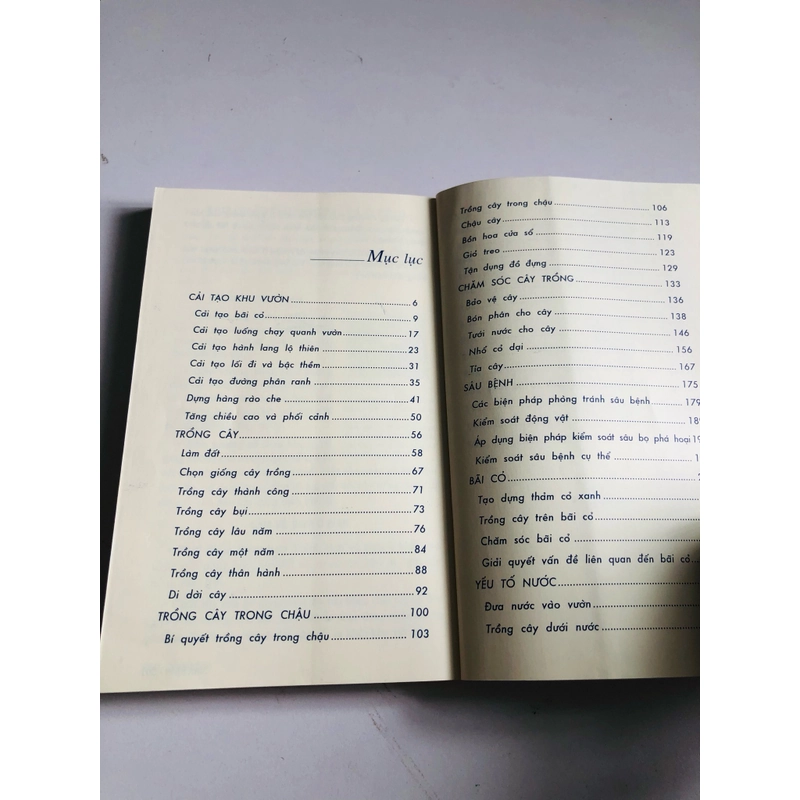 Mục lục
CẢI TẠO KHU VƯỜN 6
Cải tạo bãi cỏ 9
Cải tạo luống chạy quanh vườn 17
Cải tạo hành lang lộ thiên 23
Cải tạo lối đi và bậc thềm 31
Cải tạo đường phân ranh 35
Dựng hàng rào che 41
Tăng chiều cao và phối cảnh 50
TRỒNG CÂY 56
Làm đất 58
Chọn giống cây trồng 67
Trồng cây thành công 71
Trồng cây bụi 73
Trồng cây lâu năm 76
Trồng cây một năm 84
Trồng cây thân hành 88
Di dời cây 92
TRỒNG CÂY TRONG CHẬU 100
Bí quyết trồng cây trong chậu 103
Trồng cây trong chậu 106
Chậu cây 113
Bồn hoa cửa sổ 119
Giỏ treo 123
Tận dụng đồ đựng 129
CHĂM SÓC CÂY TRỒNG 133
Bảo vệ cây 136
Bón phân cho cây 138
Tưới nước cho cây 146
Nhổ cỏ dại 156
Tỉa cây 167
SÂU BỆNH 175
Các biện pháp phòng tránh sâu bệnh 179
Kiểm soát động vật
Áp dụng biện pháp kiểm soát sâu bọ phá hoại
Kiểm soát sâu bệnh cụ thể
BÃI CỎ
Tạo dựng thảm cỏ xanh
Trồng cây trên bãi cỏ
Chăm sóc bãi cỏ
Giải quyết vấn đề liên quan đến bãi cỏ
YẾU TỐ NƯỚC
Đưa nước vào vườn
Trồng cây dưới nước